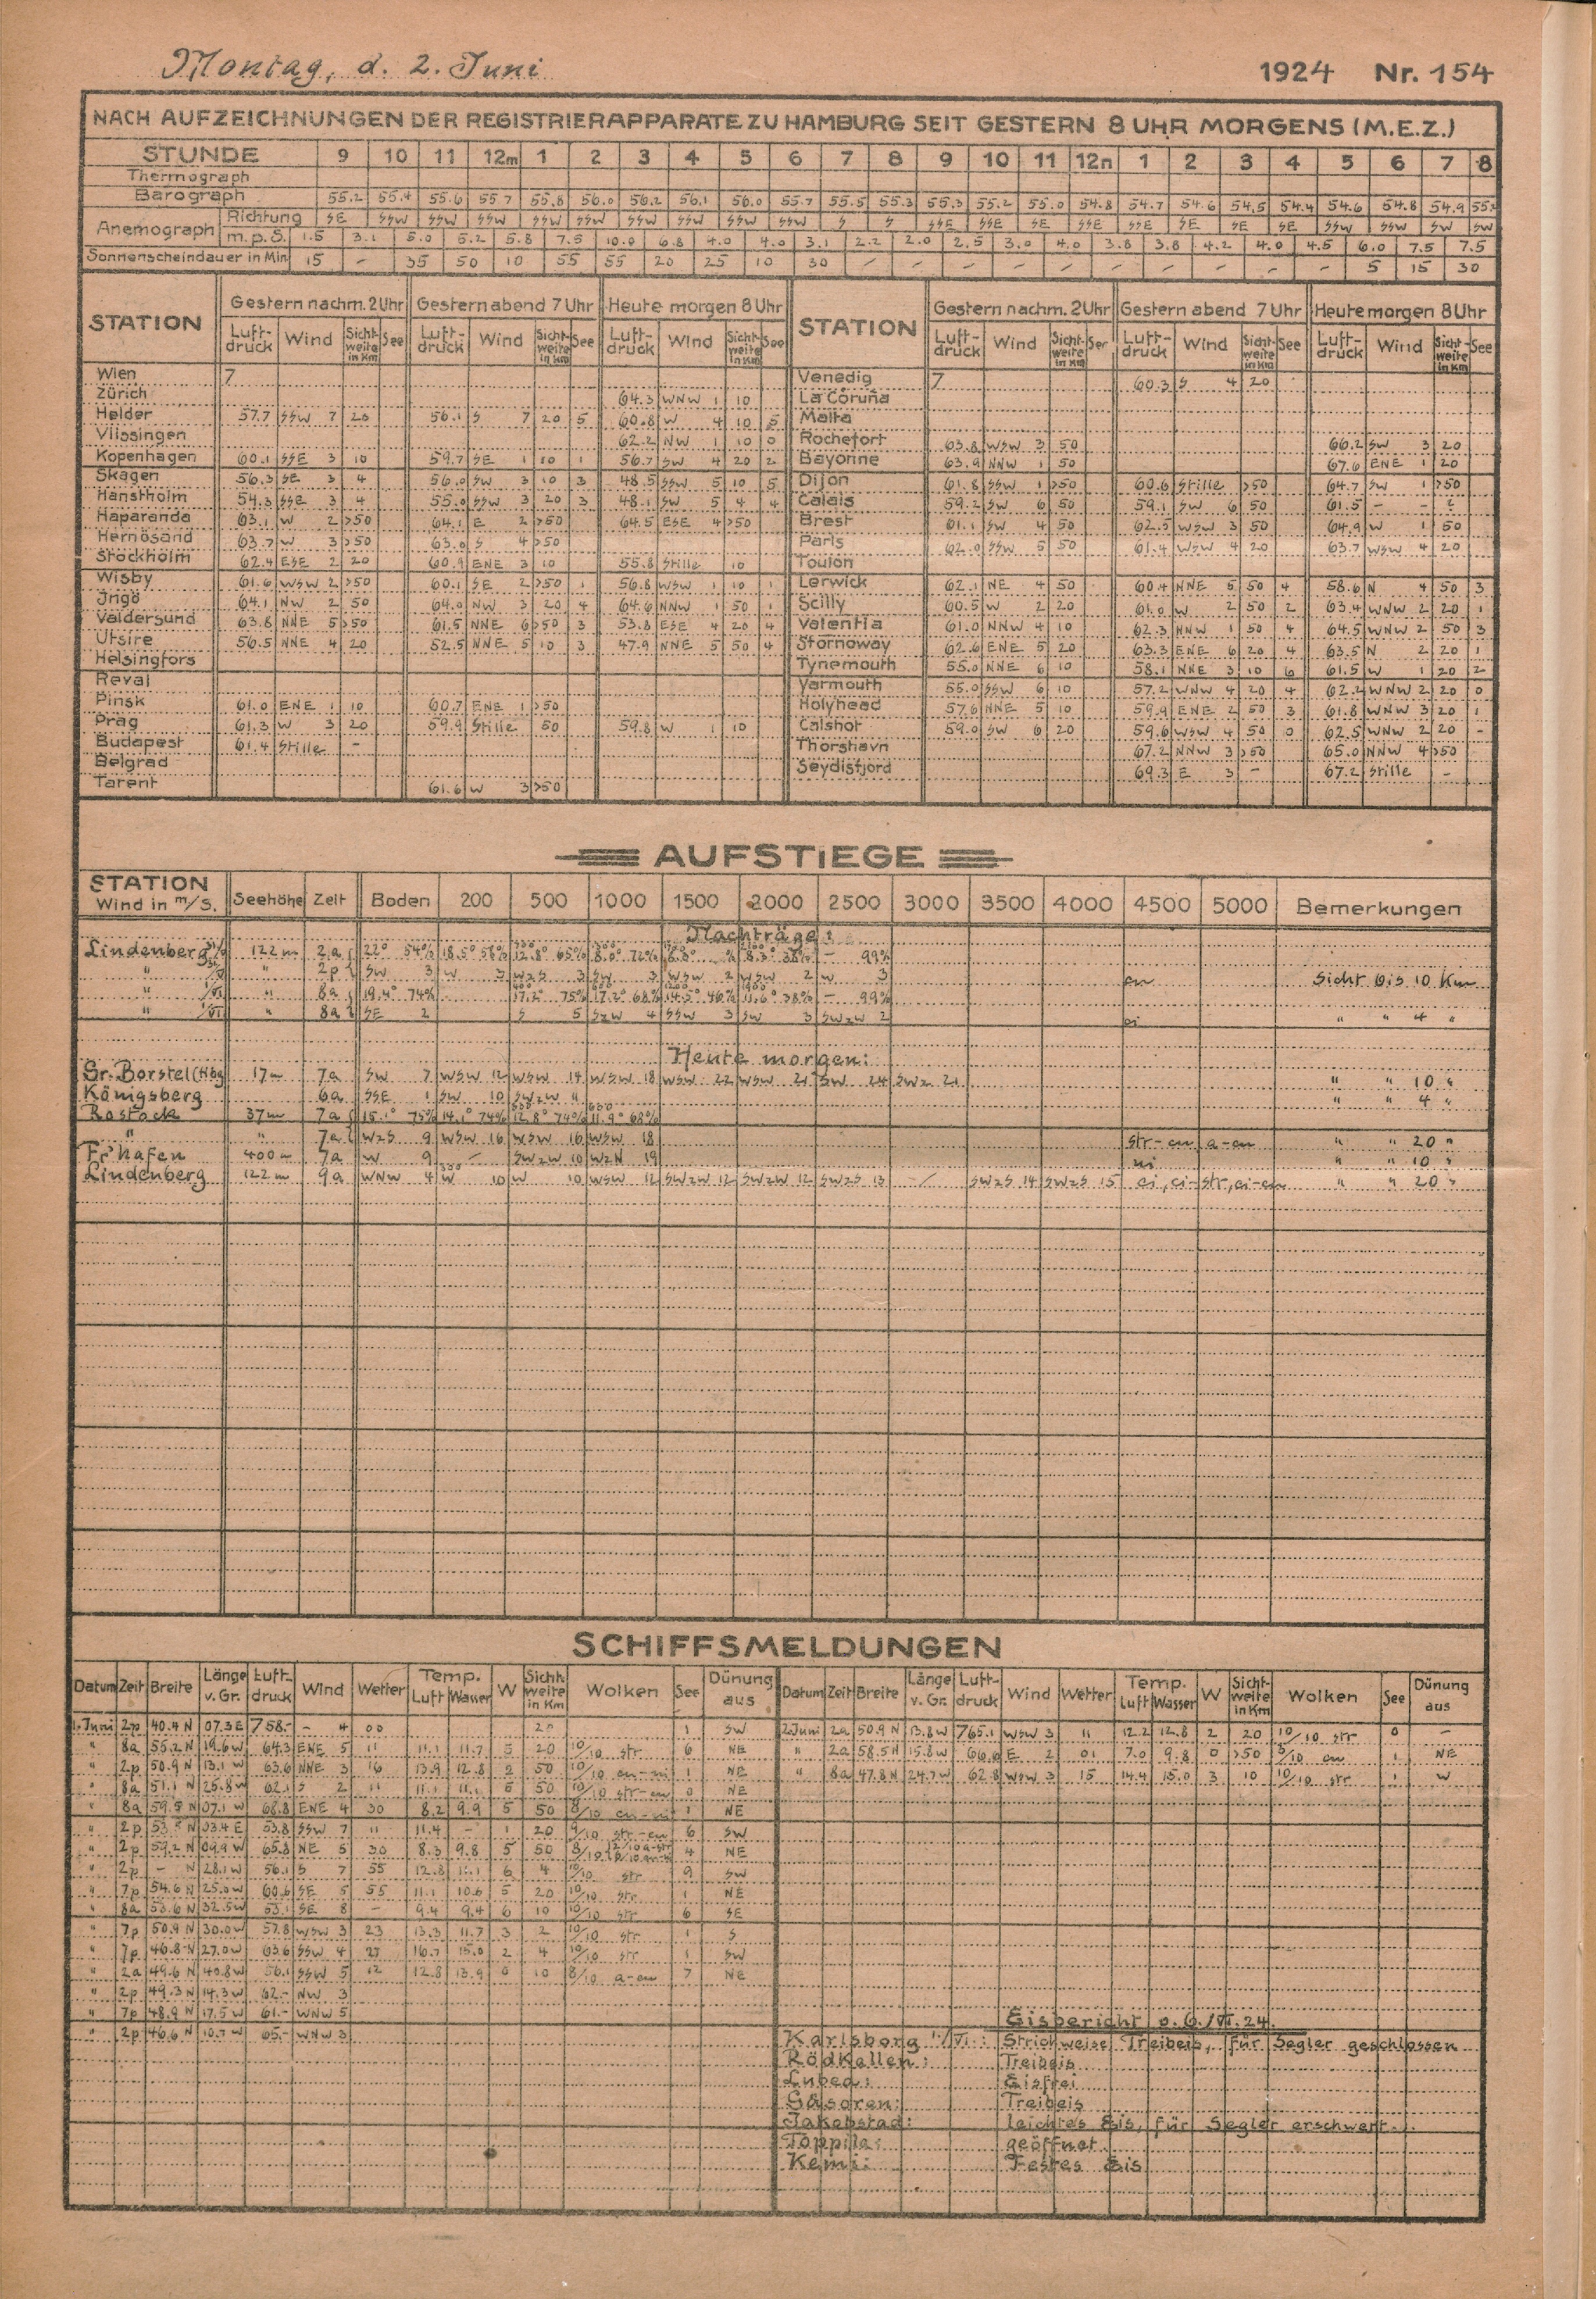 Montag, d. 2. Juni 1924 Nr. 154
NACH AUFZEICHNUNGEN DER REGISTRIERAPPARATE ZU HAMBURG SEIT GESTERN 8 UHR MORGENS (M.E.Z.)
STUNDE 9 10 11 12m 1 2 3 4 5 6 7 8 9 10 11 12n 1 2 3 4 5 6 7 8
Thermograph
Barograph 55.2 55.4 55.6 55.7 55.8 56.0 56.2 56.1 56.0 55.7 55.5 55.3 55.3 55.2 55.0 54.8 54.7 54.6 54.5 54.4 54.6 54.8 54.9
Anemograph Richtung SE SSW SSW SSW SSW SSW SSW SSW SSW SSW S S SSE SSE SSE SSE SSE SE SE SE SSW SSW SW SW
m.p.S. 1.5 3.1 5.0 5.2 5.8 7.5 10.0 6.8 4.0 4.0 3.1 2.2 2.0 2.5 3.0 4.0 3.8 3.8 4.2 4.0 4.5 6.0 7.5 7.5
Sonnenscheindauer in Min 15 - 35 50 10 55 55 20 25 10 30 - - - - - - - - - - 5 15 30
STATION Gestern nachm. 2 Uhr Gestern abend 7 Uhr Heute morgen 8 Uhr STATION Gestern nachm. 2 Uhr Gestern abend 7 Uhr Heute morgen 8 Uhr
Luft-druck Wind Sicht-weite in Km See Luft-druck Wind Sicht-weite in Km See Luft-druck Wind Sicht-weite in Km See Luft-druck Wind Sicht-weite in Km See Luft-druck Wind Sicht-weite in Km See Luft-druck Wind Sicht-weite in Km See
Wien 7 Venedig 7 60.3 S 4 20
Zürich 64.3 WNW 1 10 La Coruña
Helder 57.7 SSW 7 20 56.1 S 7 20 5 60.8 W 4 10 5 Malta
Vlissingen 62.2 NW 1 10 0 Rochefort 63.8 WSW 3 50 66.2 SW 3 20
Kopenhagen 60.1 SSE 3 10 59.7 SE 1 10 1 56.7 SW 4 20 2 Bayonne 63.9 NNW 1 50 67.6 ENE 1 20
Skagen 56.3 SE 3 4 56.0 SW 3 10 3 48.5 SSW 5 10 5 Dijon 61.8 SSW 1 >50 60.6 Stille >50 64.7 SW 1 >50
Hanstholm 54.3 SSE 3 4 55.0 SSW 3 20 3 48.1 SW 5 4 4 Calais 59.2 SW 6 50 59.1 SW 6 50 61.5 - -
Haparanda 63.1 W 2 >50 64.1 E 2 >50 64.5 ESE 4 >50 Brest 61.1 SW 4 50 62.5 WSW 3 50 64.9 W 1 50
Hernösand 63.7 W 3 >50 63.0 S 4 >50 Paris 62.0 SSW 5 50 61.4 WSW 4 20 63.7 WSW 4 20
Stockholm 62.4 ESE 2 20 60.9 ENE 3 10 55.8 Stille 10 Toulon
Wisby 61.6 WSW 2 >50 60.1 SE 2 >50 1 56.8 WSW 1 10 1 Lerwick 62.1 NE 4 50 60.4 NNE 5 50 4 58.6 N 4 50 3
Ingö 64.1 NW 2 50 64.0 NW 3 20 4 64.6 NNW 1 50 1 Scilly 60.5 W 2 20 61.0 W 2 50 2 63.4 WNW 2 20 1
Valdersund 63.8 NNE 5 >50 61.5 NNE 6 >50 3 53.8 ESE 4 20 4 Valentia 61.0 NNW 4 10 62.3 NNW 1 50 4 64.5 WNW 2 50 3
Utsire 56.5 NNE 4 20 52.5 NNE 5 10 3 47.9 NNE 5 50 4 Stornoway 62.6 ENE 5 20 63.3 ENE 6 20 4 63.5 N 2 20 1
Helsingfors Tynemouth 55.0 NNE 6 10 58.1 NNE 3 10 6 61.5 W 1 20 2
Reval Yarmouth 55.0 SSW 6 10 57.2 WNW 4 20 4 62.4 WNW 2 20 0
Pinsk 61.0 ENE 1 10 60.7 ENE 1 >50 Holyhead 57.6 NNE 5 10 59.9 ENE 2 50 3 61.8 WNW 3 20 1
Prag 61.3 W 3 20 59.9 Stille 50 59.8 W 1 10 Calshot 59.0 SW 6 20 59.6 WSW 4 50 0 62.5 WNW 2 20 -
Budapest 61.4 Stille - Thorshavn 67.2 NNW 3 >50 65.0 NNW 4 >50
Belgrad Seydisfjord 69.3 E 3 - 67.2 Stille -
Tarent 61.6 W 3 >50
AUFSTIEGE
STATION Wind in m/S. Seehöhe Zeit Boden 200 500 1000 1500 2000 2500 3000 3500 4000 4500 5000 Bemerkungen
Nachträge:
Lindenberg 122m 2a 22° 54% 18.5° 56% 12.8° 65% 8.0° 72% - 99%
" " 2p SW 3 W 3 WzS 3 SW 3 WSW 2 WSW 2 W 3 cu Sicht bis 10 Km
" 1/VI " 8a 19.4° 74% 17.2° 75% 17.2° 68% 14.5° 46% 11.6° 38% - 99%
" 1/VI " 8a SE 2 S 5 SzW 4 SSW 3 SW 3 SWzW 2 ci " " 4 "
Heute morgen:
Gr. Borstel (Hbg 17m 7a SW 7 WSW 12 WSW 14 WSW 18 WSW 22 WSW 21 SW 24 SWz 21 " " 10 "
Königsberg 6a SSE 1 SW 10 SWzW " " " 4 "
Rostock 37m 7a 15.1° 75% 14.1° 74% 12.8° 74% 11.9° 68%
" " 7a WzS 9 WSW 16 WSW 16 WSW 18 str-cu a-cu " " 20 "
Fr'hafen 400m 7a W 9 - SWzW 10 WzN 19 ni " " 10 "
Lindenberg 122m 9a WNW 4 W 10 W 10 WSW 12 SWzW 12 SWzW 12 SWzS 13 - SWzS 14 SWzS 15 ci, ci-str, ci-cu " " 20 "
SCHIFFSMELDUNGEN
Datum Zeit Breite Länge v. Gr. Luft-druck Wind Wetter Temp. Luft Wasser W Sicht-weite in Km Wolken See Dünung aus Datum Zeit Breite Länge v. Gr. Luft-druck Wind Wetter Temp. Luft Wasser W Sicht-weite in Km Wolken See Dünung aus
1. Juni 2p 40.4 N 07.3 E 758.- - 4 00 20 1 SW 2. Juni 2a 50.9 N 13.8 W 765.1 WSW 3 11 12.2 12.8 2 20 10/10 str 0 -
" 8a 55.2 N 19.6 W 64.3 ENE 5 11 11.1 11.7 5 20 10/10 str 6 NE " 2a 58.5 N 15.8 W 66.0 E 2 01 7.0 9.8 0 >50 5/10 cu 1 NE
" 2p 50.9 N 13.1 W 63.6 NNE 3 16 13.9 12.8 2 50 10/10 cu-ni 1 NE " 8a 47.8 N 24.7 W 62.8 WSW 3 15 14.4 15.0 3 10 10/10 str 1 W
" 8a 51.1 N 25.8 W 62.1 S 2 11 11.1 11.1 5 50 10/10 str-cu 0 NE
" 8a 59.5 N 07.1 W 68.8 ENE 4 30 8.2 9.9 5 50 8/10 cu-ni 1 NE
" 2p 53.5 N 03.4 E 53.8 SSW 7 11 11.4 - 1 20 9/10 str-cu 6 SW
" 2p 59.2 N 09.9 W 65.8 NE 5 30 8.3 9.8 5 50 8/10 4 NE
" 2p - N 28.1 W 56.1 S 7 55 12.8 6 4 10/10 str 9 SW
" 7p 54.6 N 25.0 W 60.6 SE 5 55 11.1 10.6 5 20 10/10 str 1 NE
" 8a 53.6 N 32.5 W 53.1 SE 8 - 9.4 9.4 6 10 10/10 str 6 SE
" 7p 50.9 N 30.0 W 57.8 WSW 3 23 13.3 11.7 3 2 10/10 str 1 S
" 7p 46.8 N 27.0 W 63.6 SSW 4 27 16.7 15.0 2 4 10/10 str 1 SW
" 2a 49.6 N 40.8 W 56.1 SSW 5 12 12.8 13.9 0 10 8/10 a-cu 7 NE
" 2p 49.3 N 14.3 W 62.- NW 3
" 7p 48.9 N 17.5 W 61.- WNW 5
" 2p 46.6 N 10.7 W 65.- WNW 3
Eisbericht v. 24.
Karlsborg 1./VI.: Strichweise Treibeis, für Segler geschlossen
Rödkallen: Treibeis
Lubea: Eisfrei
Gåsören: Treibeis
Jakobstad: leichtes Eis, für Segler erschwert.
Toppila: geöffnet.
Kemi: Festes Eis